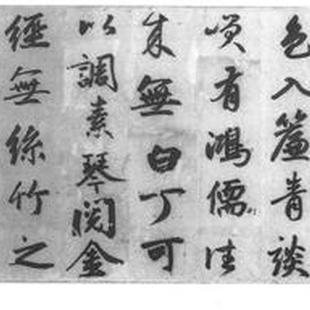 色入簾青談
咲有鴻儒往
来無白丁可
以調素琴閱金
經無絲竹之